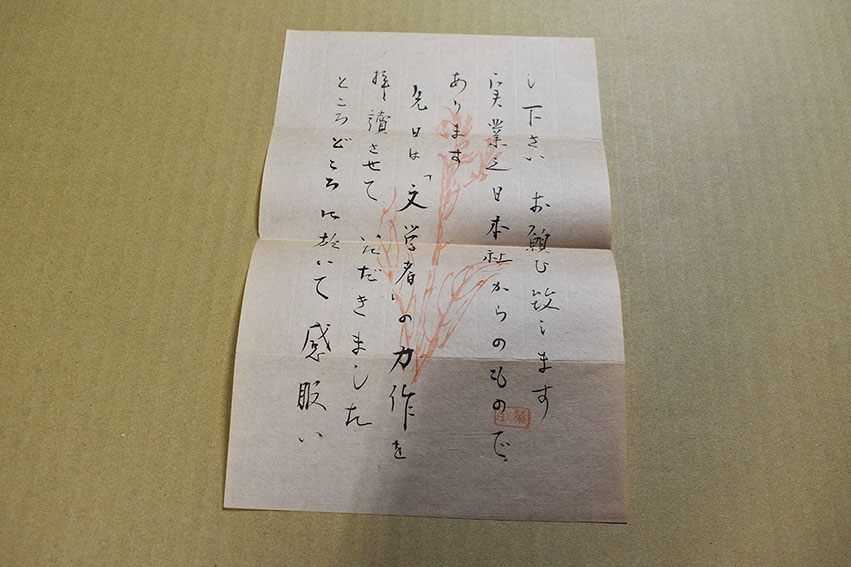 し下さい お願ひ致します
実業之日本社からのもので
あります
先日は「文学者」の力作を
拝讀させて いただきました
ところどころに於いて 感服い